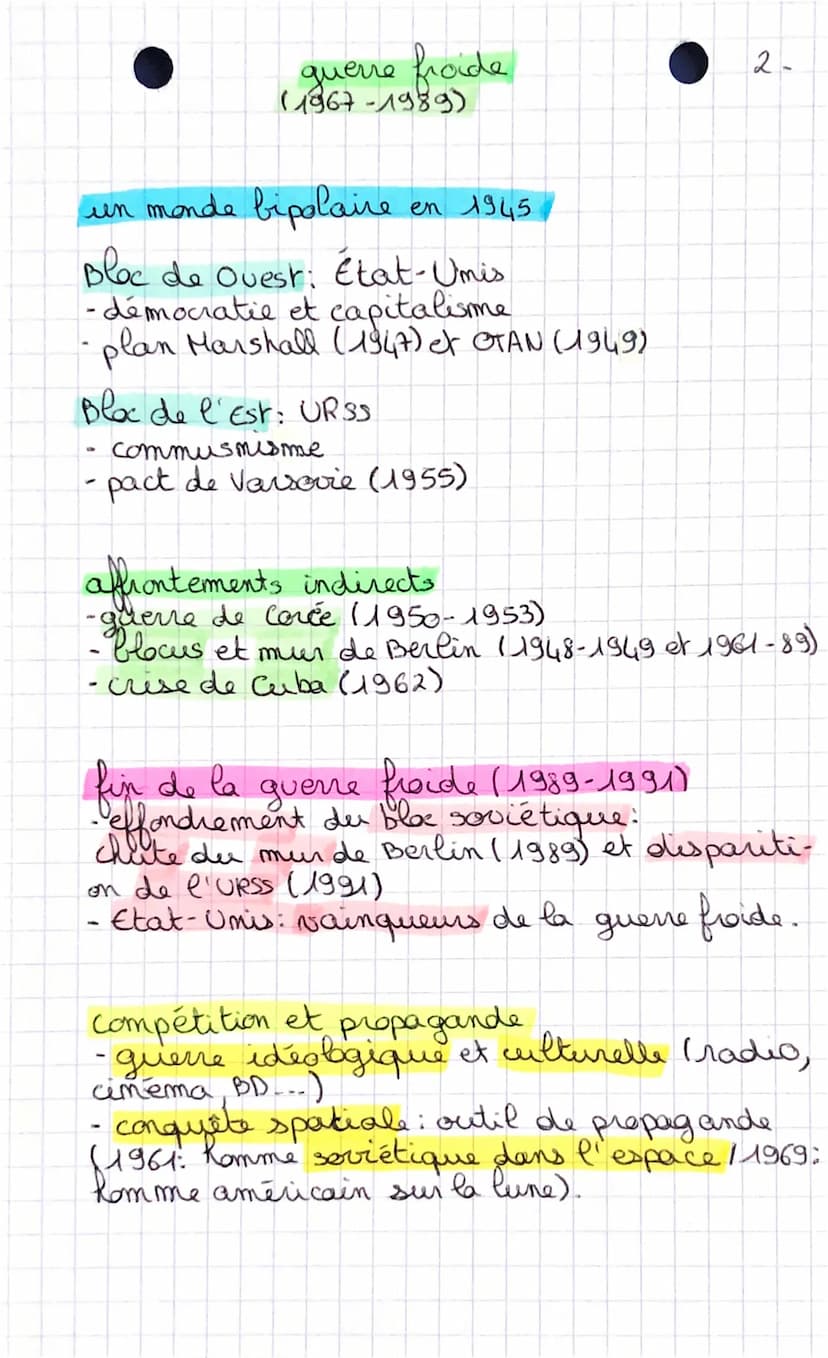 guerre froide
2-
(1967-1989)
un monde bipolaire en 1945
Bloc de Ouest: État-Unis
- démocratie et capitalisme
- plan Marshall (1947) et OTAN (1949)
Bloc de l'Est: URSS
- commusnisme
- pact de Varsovie (1955)
affrontements indirects
- guerre de Corée (1950-1953)
- blocus et mur de Berlin (1948-1949 et 1961-89)
- crise de Cuba (1962)
fin de la guerre froide (1989-1991)
- effondrement du bloc soviétique:
chûte du mur de Berlin (1989) et dispariti-
on de l'URSS (1991)
- Etat-Unis: vainqueurs de la guerre froide.
compétition et propagande
- guerre idéologique et culturelle (radio,
cinéma, BD...)
- conquête spatiale: outil de propagande
(1961: homme soviétique dans l'espace / 1969:
homme américain sur la lune).